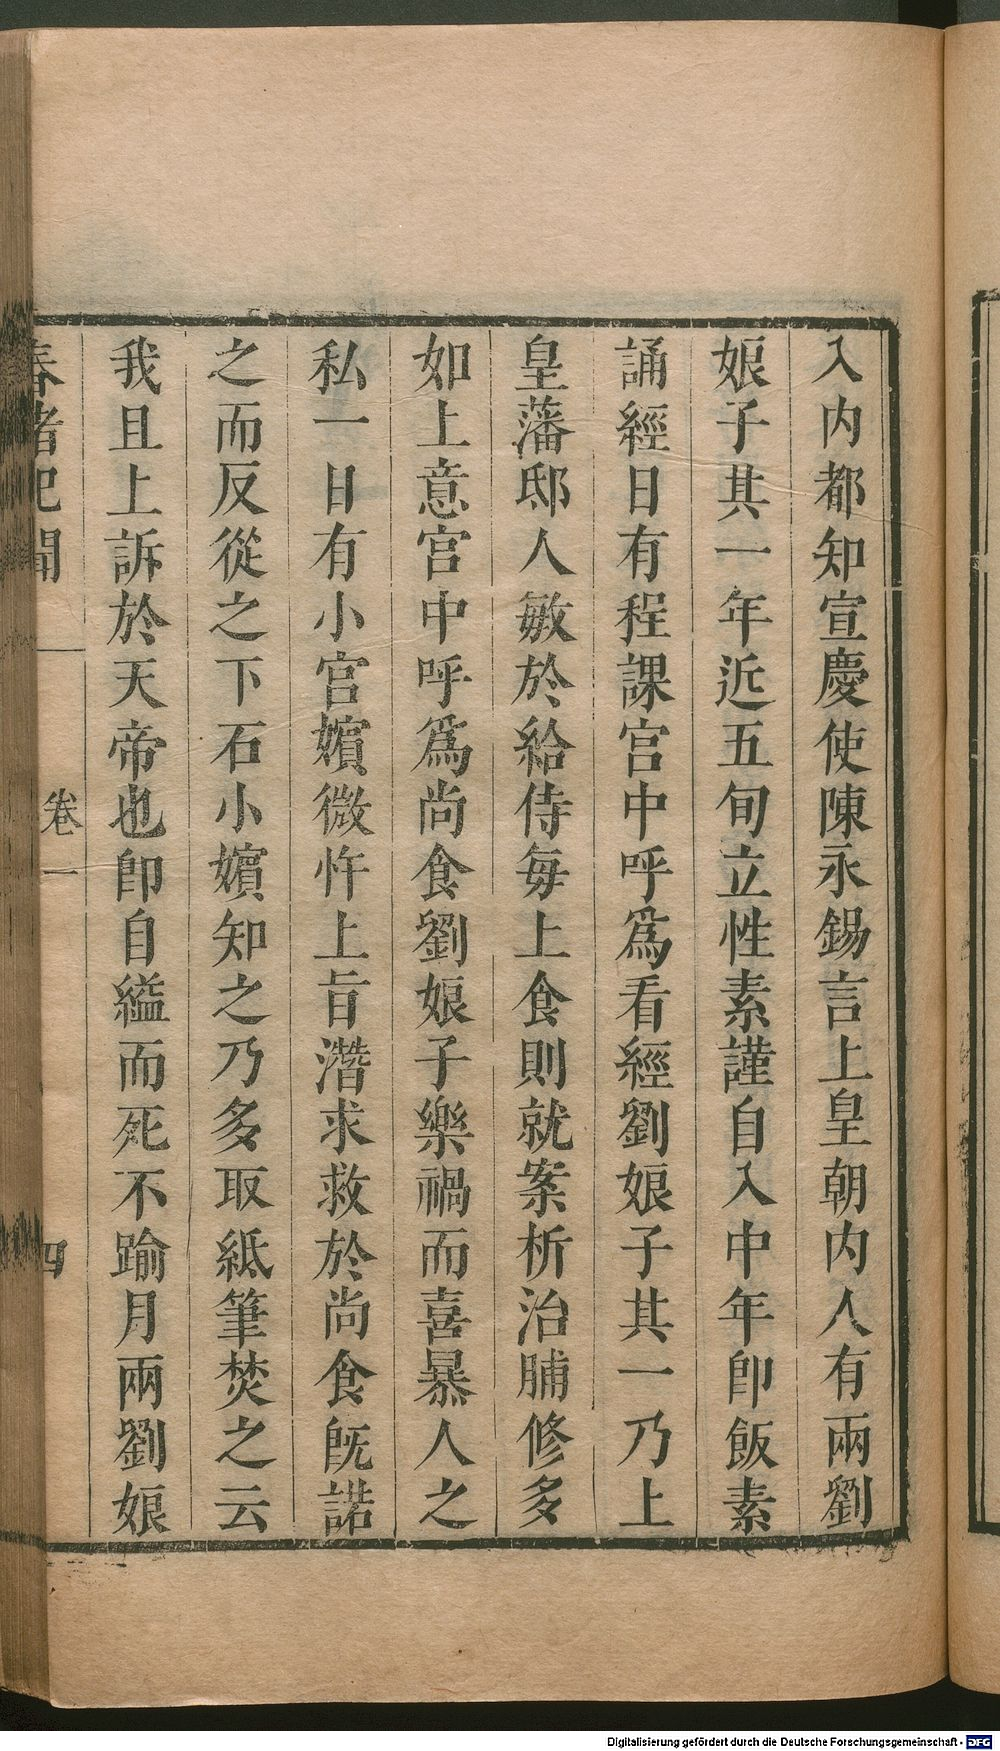 入内都知宣慶使陳永錫言上皇朝内人有兩劉
娘子其一年近五旬立性素謹自入中年卽飯素
誦經日有程課宮中呼爲看經劉娘子其一乃上
皇藩邸人敏於給侍每上食則就案析治脯修多
如上意宮中呼爲尚食劉娘子樂禍而喜暴人之
私一日有小宮嬪微忤上旨潛求救於尚食旣諾
之而反從之下石小嬪知之乃多取紙筆焚之云
我且上訴於天帝也卽自縊而死不踰月兩劉娘
春渚紀聞
卷一
四
Digitalisierung gefördert durch die Deutsche Forschungsgemeinschaft - DFG